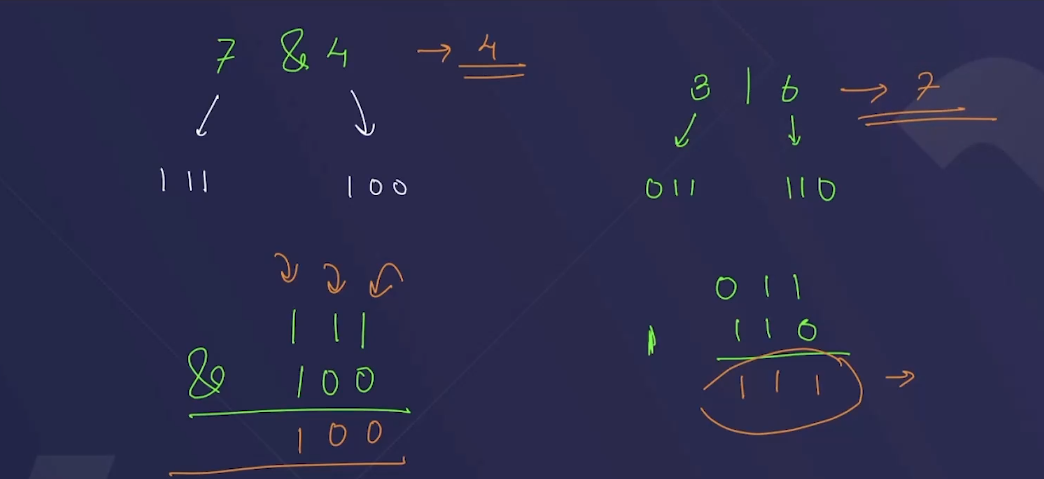 7 & 4 → 4
111 100
111
& 100
100
3 | 6 → 7
011 110
011
| 110
111 →